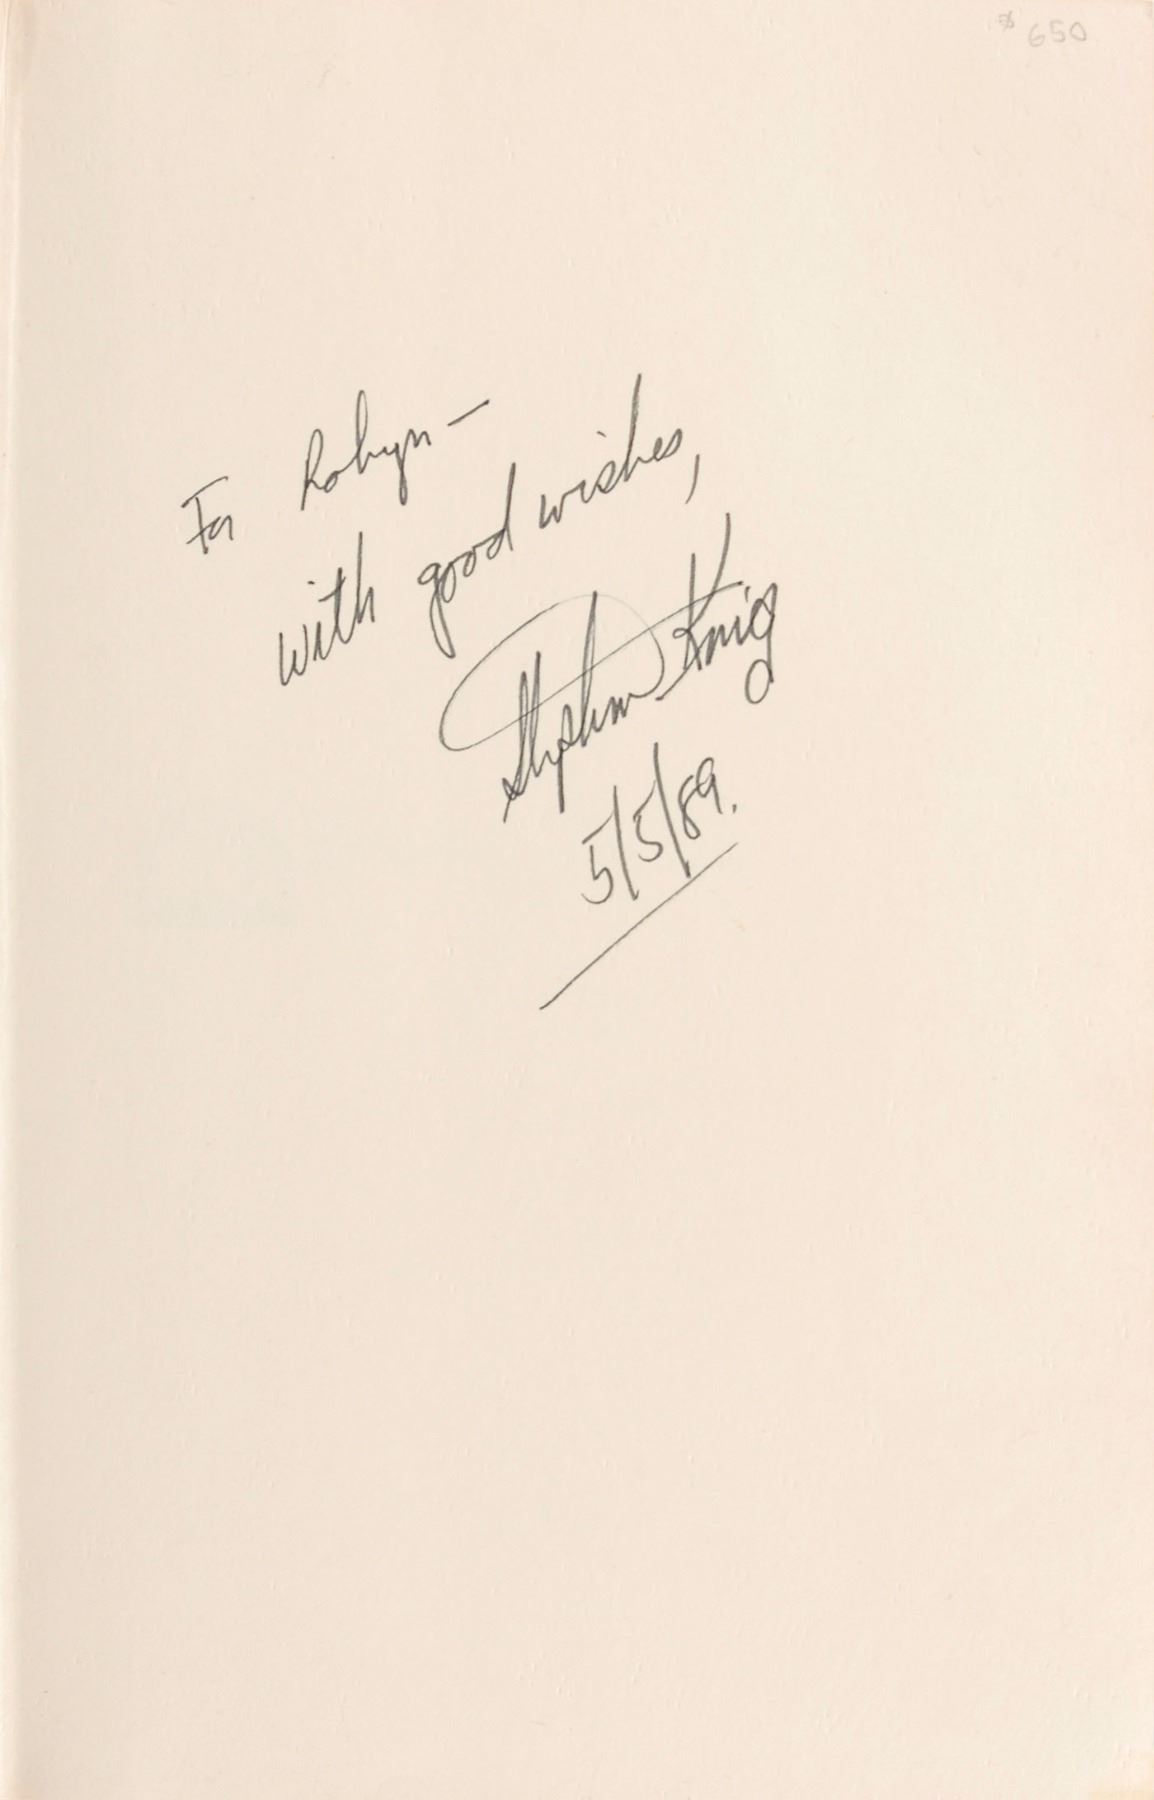 $650
For Robyn —
with good wishes,
Stephen King
5/5/89.